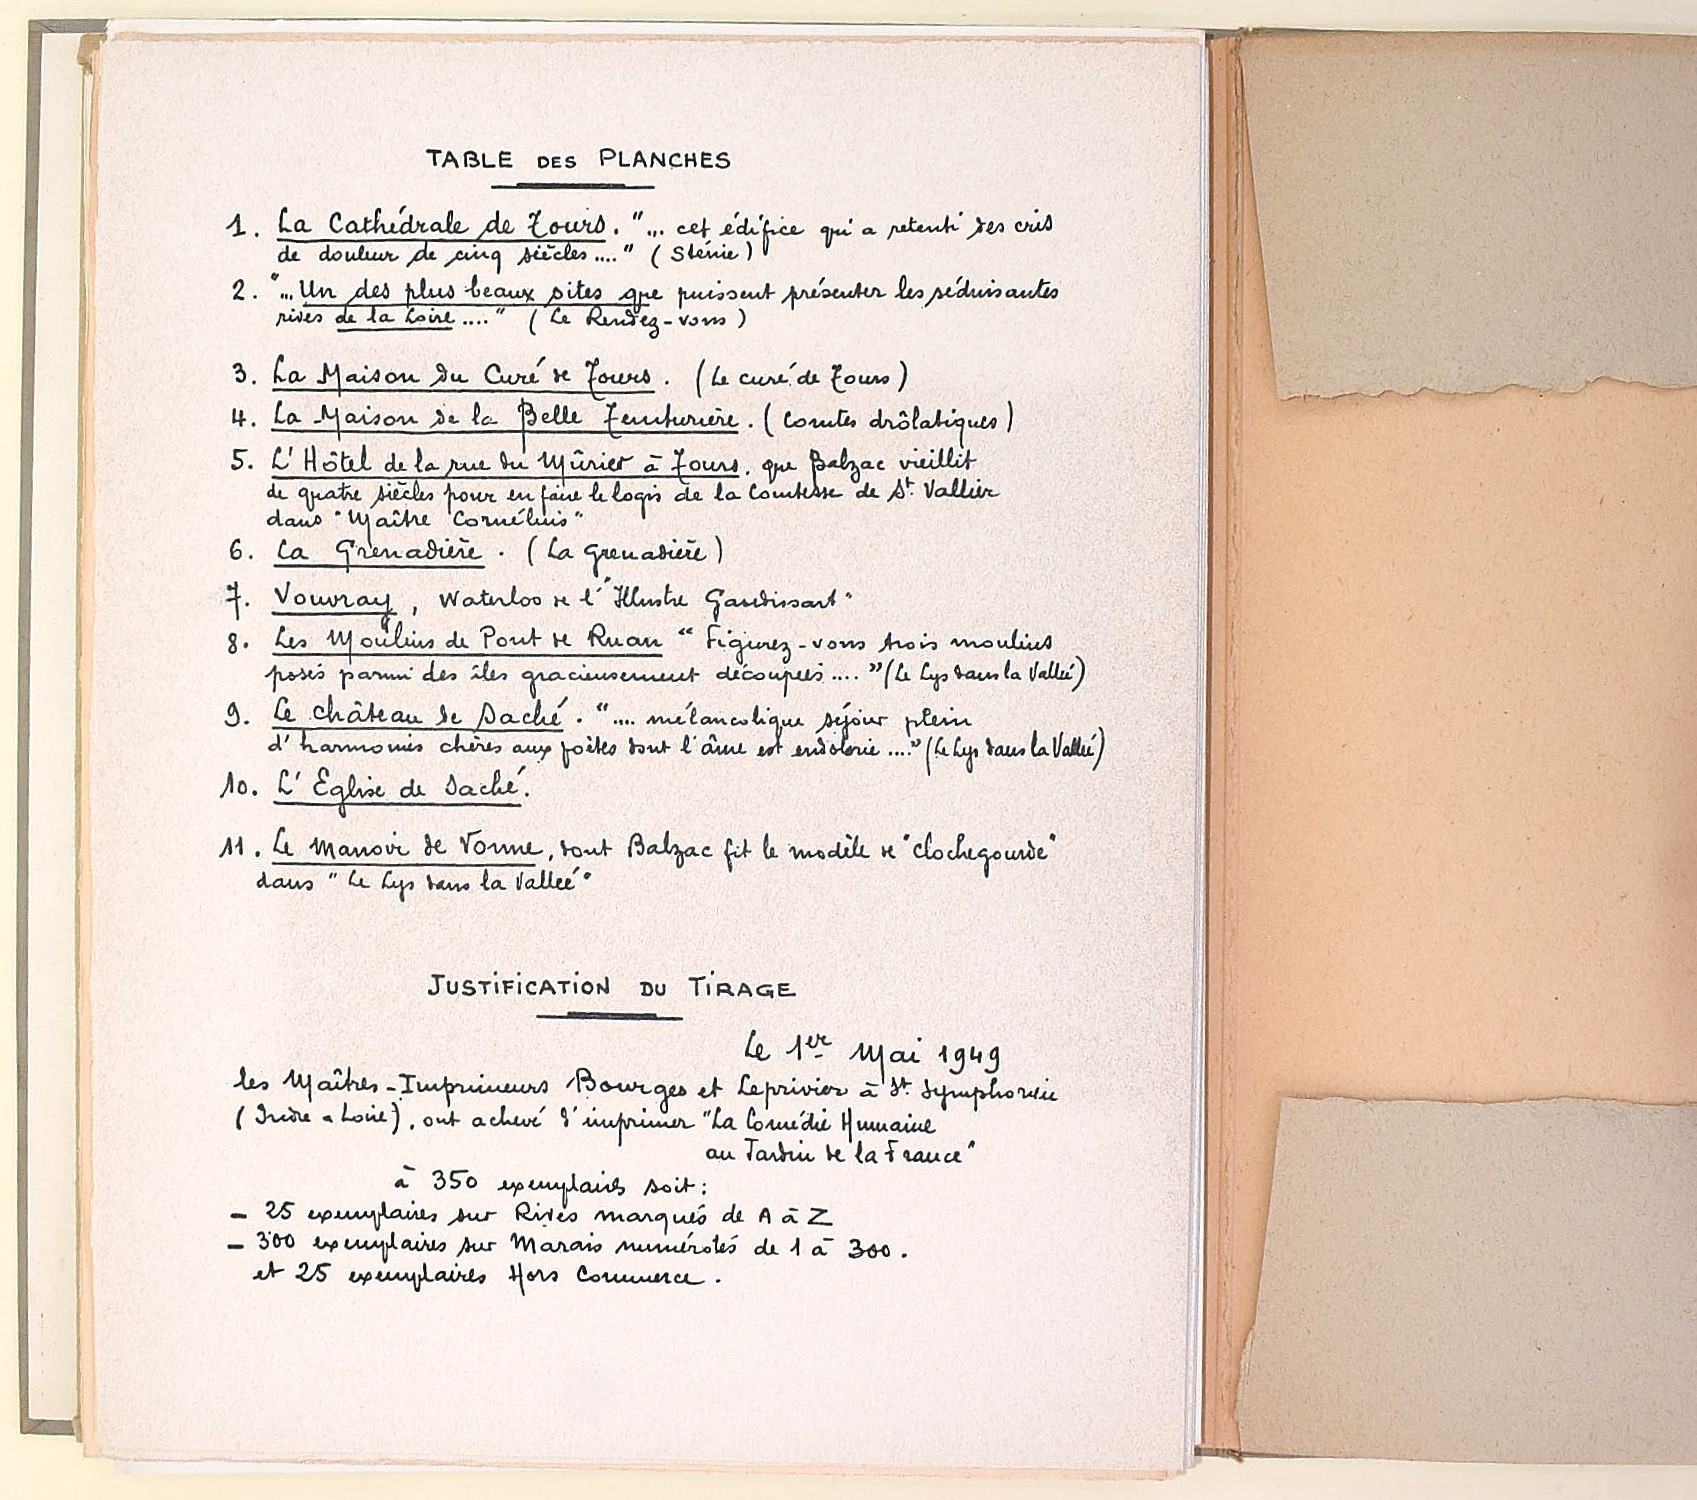 TABLE DES PLANCHES
1. La Cathédrale de Tours. "... cet édifice qui a retenti des cris
de douleur de cinq siècles...." (Sténie)
2. "... Un des plus beaux sites que puissent présenter les séduisantes
rives de la Loire...." (Le Rendez-vous)
3. La Maison du Curé de Tours. (Le curé de Tours)
4. La Maison de la Belle Teinturière. (Contes drôlatiques)
5. L'Hôtel de la rue du Mûrier à Tours, que Balzac vieillit
de quatre siècles pour en faire le logis de la Comtesse de St. Vallier
dans "Maître Cornélius"
6. La Grenadière. (La Grenadière)
7. Vouvray, Waterloo de l'"Illustre Gaudissart"
8. Les Moulins de Pont de Ruan "Figurez-vous trois moulins
posés parmi des îles gracieusement découpées...." (Le Lys dans la Vallée)
9. Le château de Saché. ".... mélancolique séjour plein
d'harmonies chères aux poètes dont l'âme est endolorie...." (Le Lys dans la Vallée)
10. L'Eglise de Saché.
11. Le Manoir de Vonne, dont Balzac fit le modèle de "Clochegourde"
dans "Le Lys dans la Vallée"
JUSTIFICATION DU TIRAGE
Le 1er Mai 1949
les Maîtres-Imprimeurs Bourges et Leprivier à St. Symphorien
(Indre & Loire), ont achevé d'imprimer "La Comédie Humaine
au Jardin de la France"
à 350 exemplaires soit :
- 25 exemplaires sur Rives marqués de A à Z
- 300 exemplaires sur Marais numérotés de 1 à 300.
et 25 exemplaires Hors Commerce.